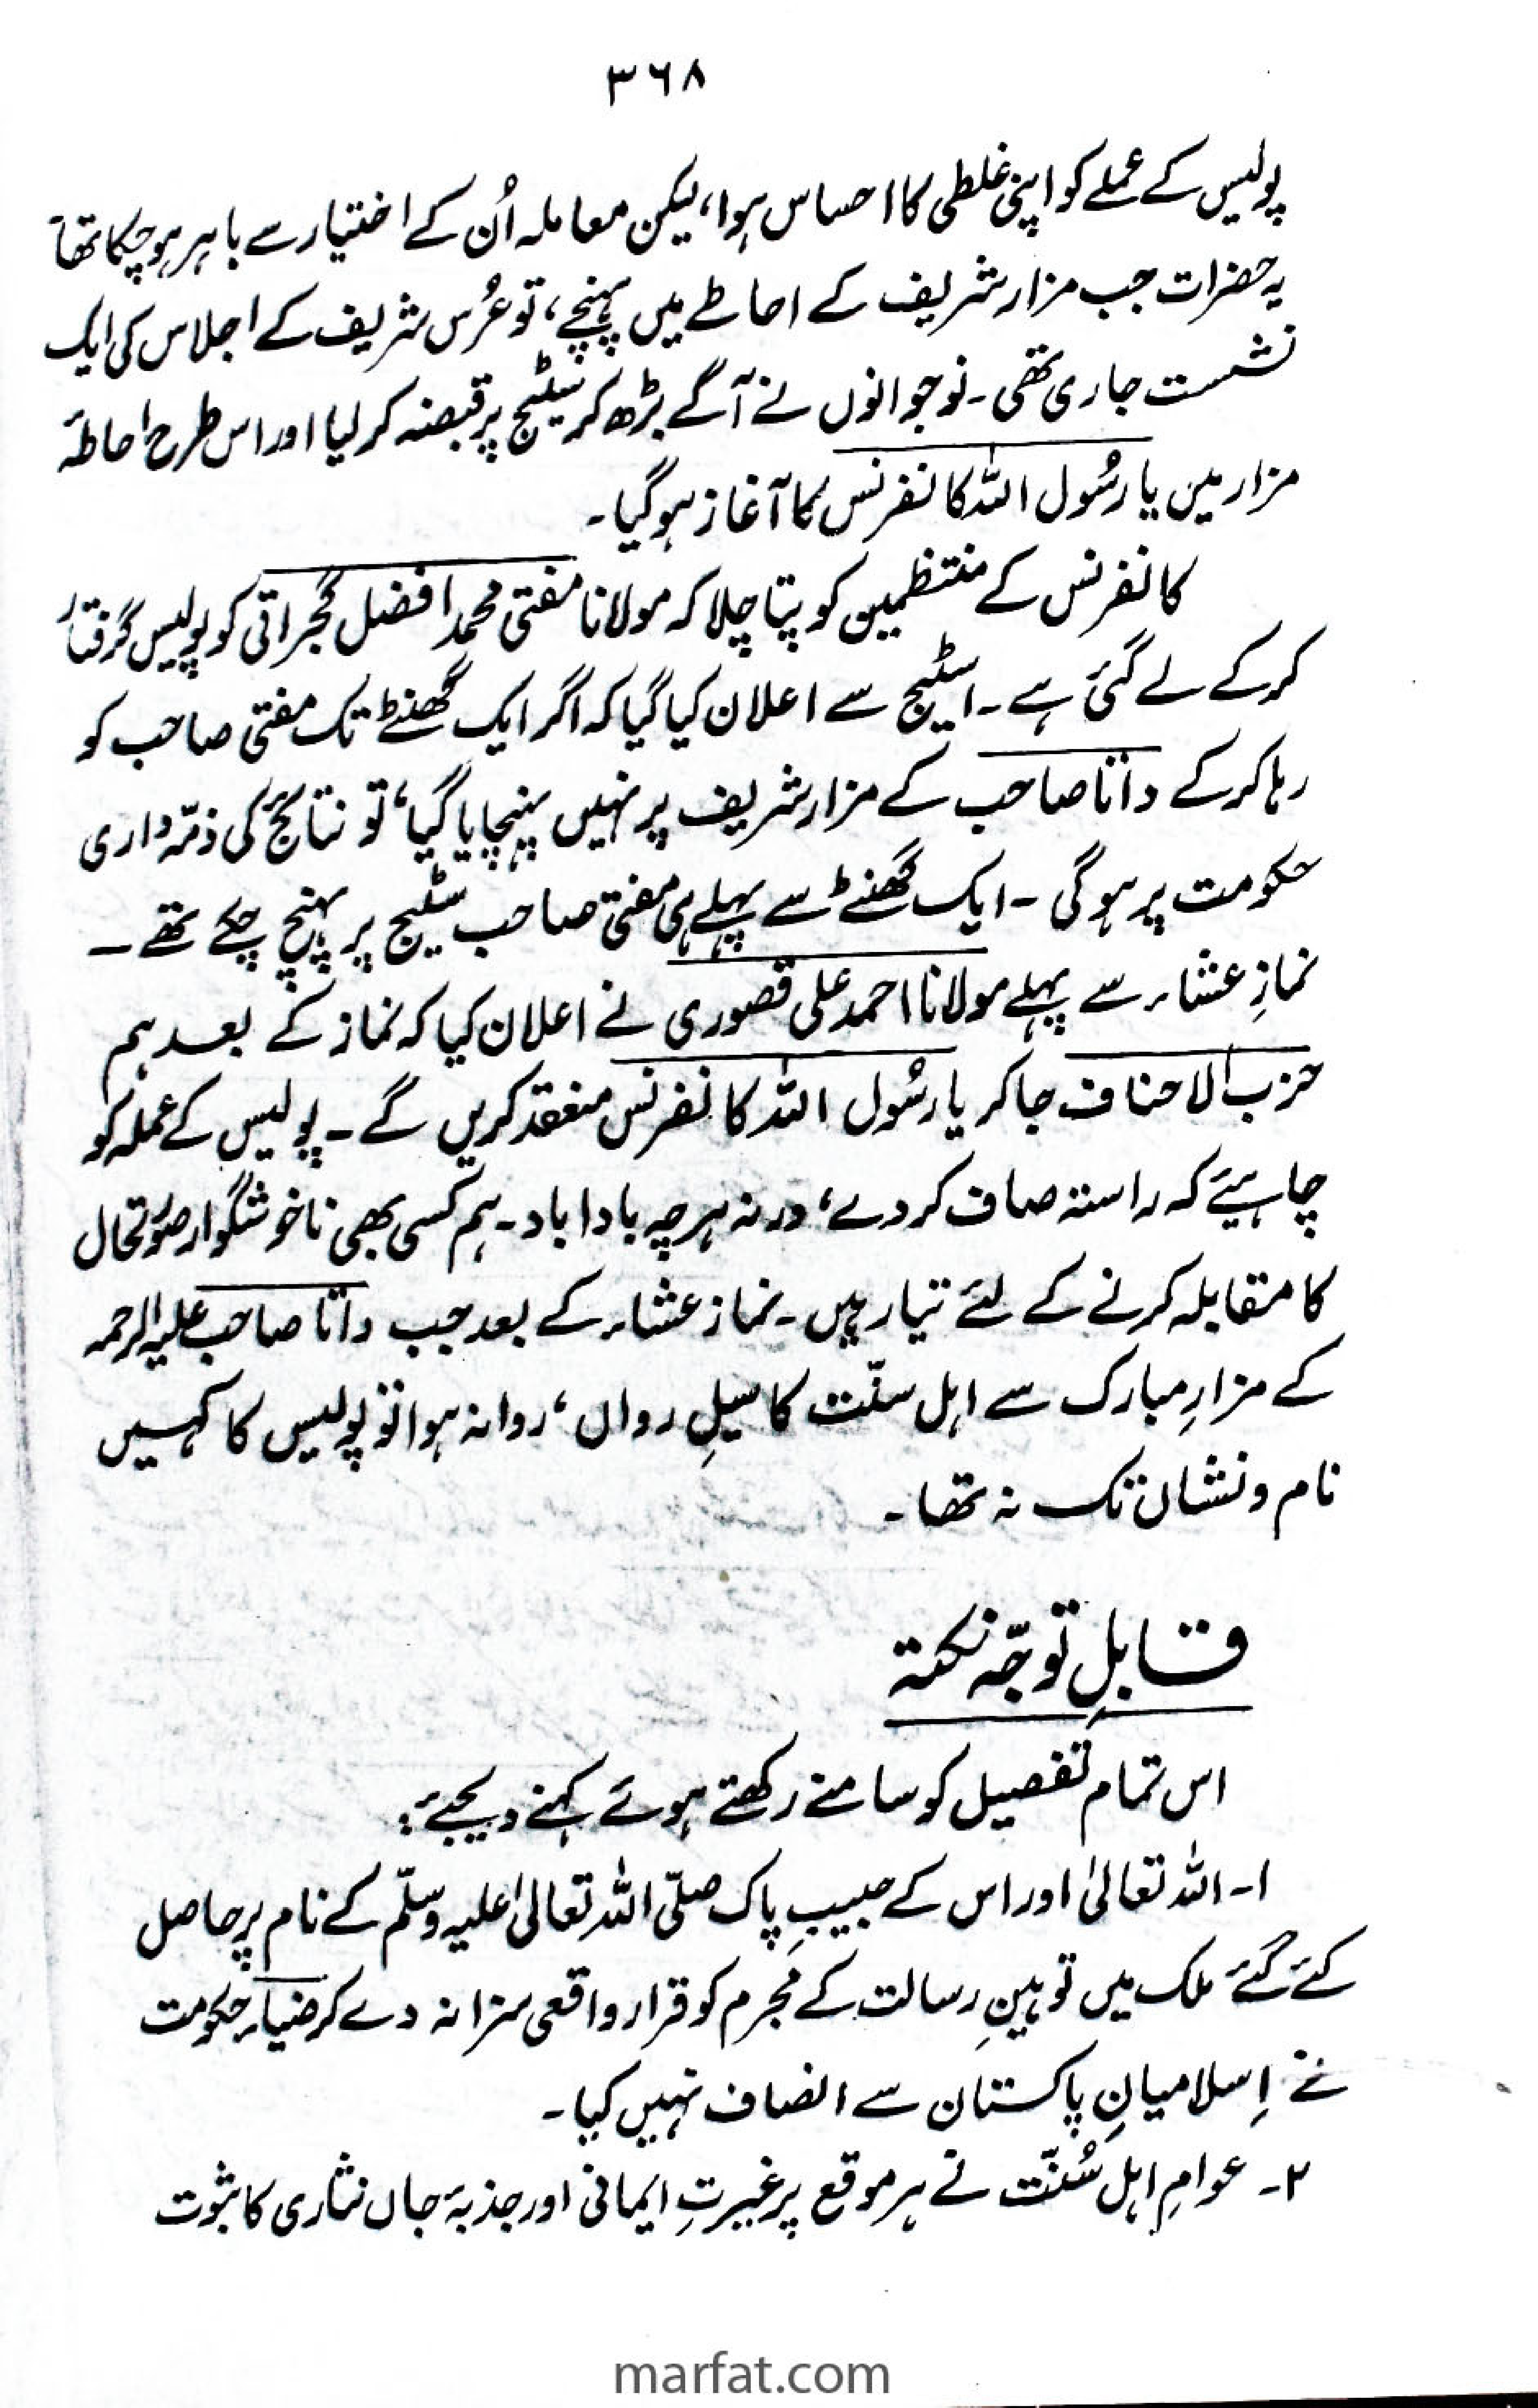 ۳۶۸
پولیس کے عملے کو اپنی غلطی کا احساس ہوا، لیکن معاملہ اُن کے اختیار سے باہر ہو چکا تھا
یہ حضرات جب مزار شریف کے احاطے میں پہنچے، تو عُرس شریف کے اجلاس کی ایک
نشست جاری تھی۔ نوجوانوں نے آگے بڑھ کر سٹیج پر قبضہ کر لیا اور اس طرح احاطۂ
مزار میں یا رسُول اللہ کانفرنس کا آغاز ہو گیا۔
کانفرنس کے منتظمین کو پتا چلا کہ مولانا مفتی محمد افضل گجراتی کو پولیس گرفتار
کر کے لے گئی ہے۔ اسٹیج سے اعلان کیا گیا کہ اگر ایک گھنٹے تک مفتی صاحب کو
رہا کر کے داتا صاحب کے مزار شریف پر نہیں پہنچایا گیا، تو نتائج کی ذمّہ داری
حکومت پر ہو گی ۔ ایک گھنٹے سے پہلے ہی مفتی صاحب سٹیج پر پہنچ چکے تھے ۔
نمازِ عشاء سے پہلے مولانا احمد علی قصوری نے اعلان کیا کہ نماز کے بعد ہم
حزب الاحناف جا کر یا رسُول اللہ کانفرنس منعقد کریں گے ۔ پولیس کے عملہ کو
چاہیئے کہ راستہ صاف کر دے، ورنہ ہرچہ بادا باد۔ ہم کسی بھی ناخوشگوار صورتحال
کا مقابلہ کرنے کے لئے تیار ہیں ۔ نماز عشاء کے بعد جب داتا صاحب علیہ الرحمہ
کے مزارِ مبارک سے اہل سنّت کا سیلِ رواں، روانہ ہوا تو پولیس کا کہیں
نام و نشان تک نہ تھا ۔
قابلِ توجّہ نکتہ
اس تمام تفصیل کو سامنے رکھتے ہوئے کہنے دیجئے:
۱۔ اللہ تعالیٰ اور اس کے حبیبِ پاک صلّی اللہ تعالیٰ علیہ وسلّم کے نام پر حاصل
کئے گئے ملک میں توہینِ رسالت کے مجرم کو قرار واقعی سزا نہ دے کر ضیاء حکومت
نے اِسلامیانِ پاکستان سے انصاف نہیں کیا ۔
۲۔ عوامِ اہل سُنّت نے ہر موقع پر غیرتِ ایمانی اور جذبۂ جاں نثاری کا ثبوت
marfat.com